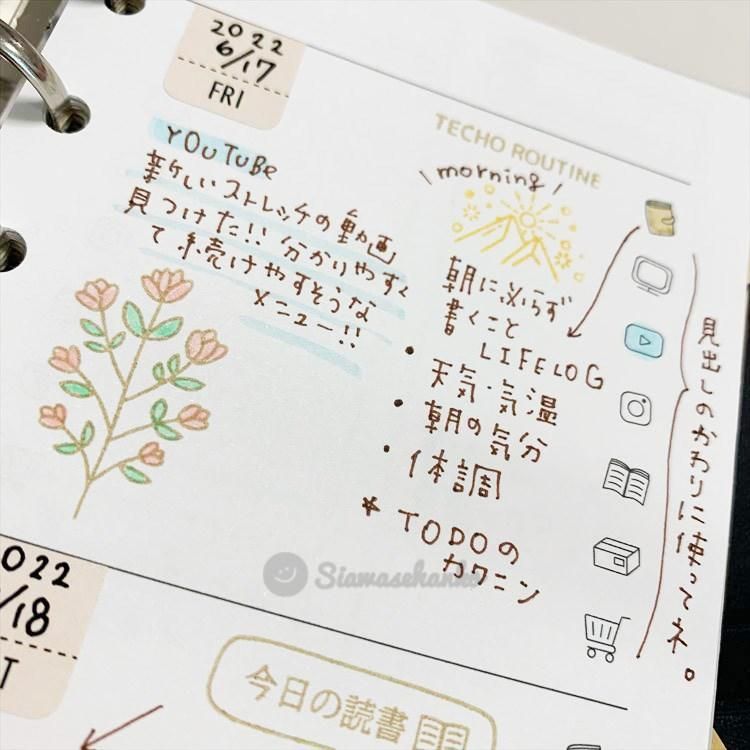 2022
6/17
FRI
YOUTUBE
新しいストレッチの動画
見つけた!! 分かりやすく
て続けやすそうな
メニュー!!
TECHO ROUTINE
\morning/
朝に必らず
書くこと
LIFELOG
・天気・気湿
・朝の気分
・体調
* TODOの
カクニン
見出しのかわりに使ってネ。
Siawasehanko
2022
/18
T
今日の読書